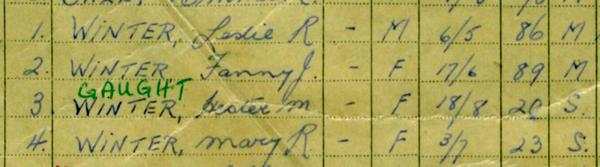 1. WINTER, Leslie R - M 6/5 86 M
2. WINTER Fanny J. - F 17/6 89 M
GAUGHT
3. WINTER, Hester M - F 18/8 20 S.
4. WINTER, Mary R. - F 3/7 23 S.